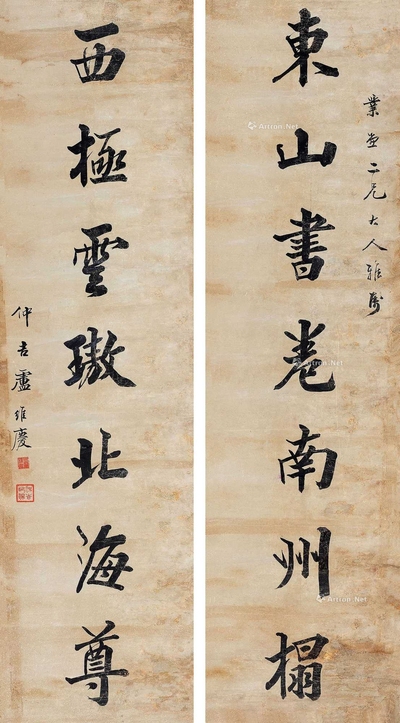 業堂二兄大人雅屬
東山書卷南州榻
西極雲璈北海尊
仲吉盧維慶
Artron.Net
Artron.Net
Artron.Net
Artron.Net